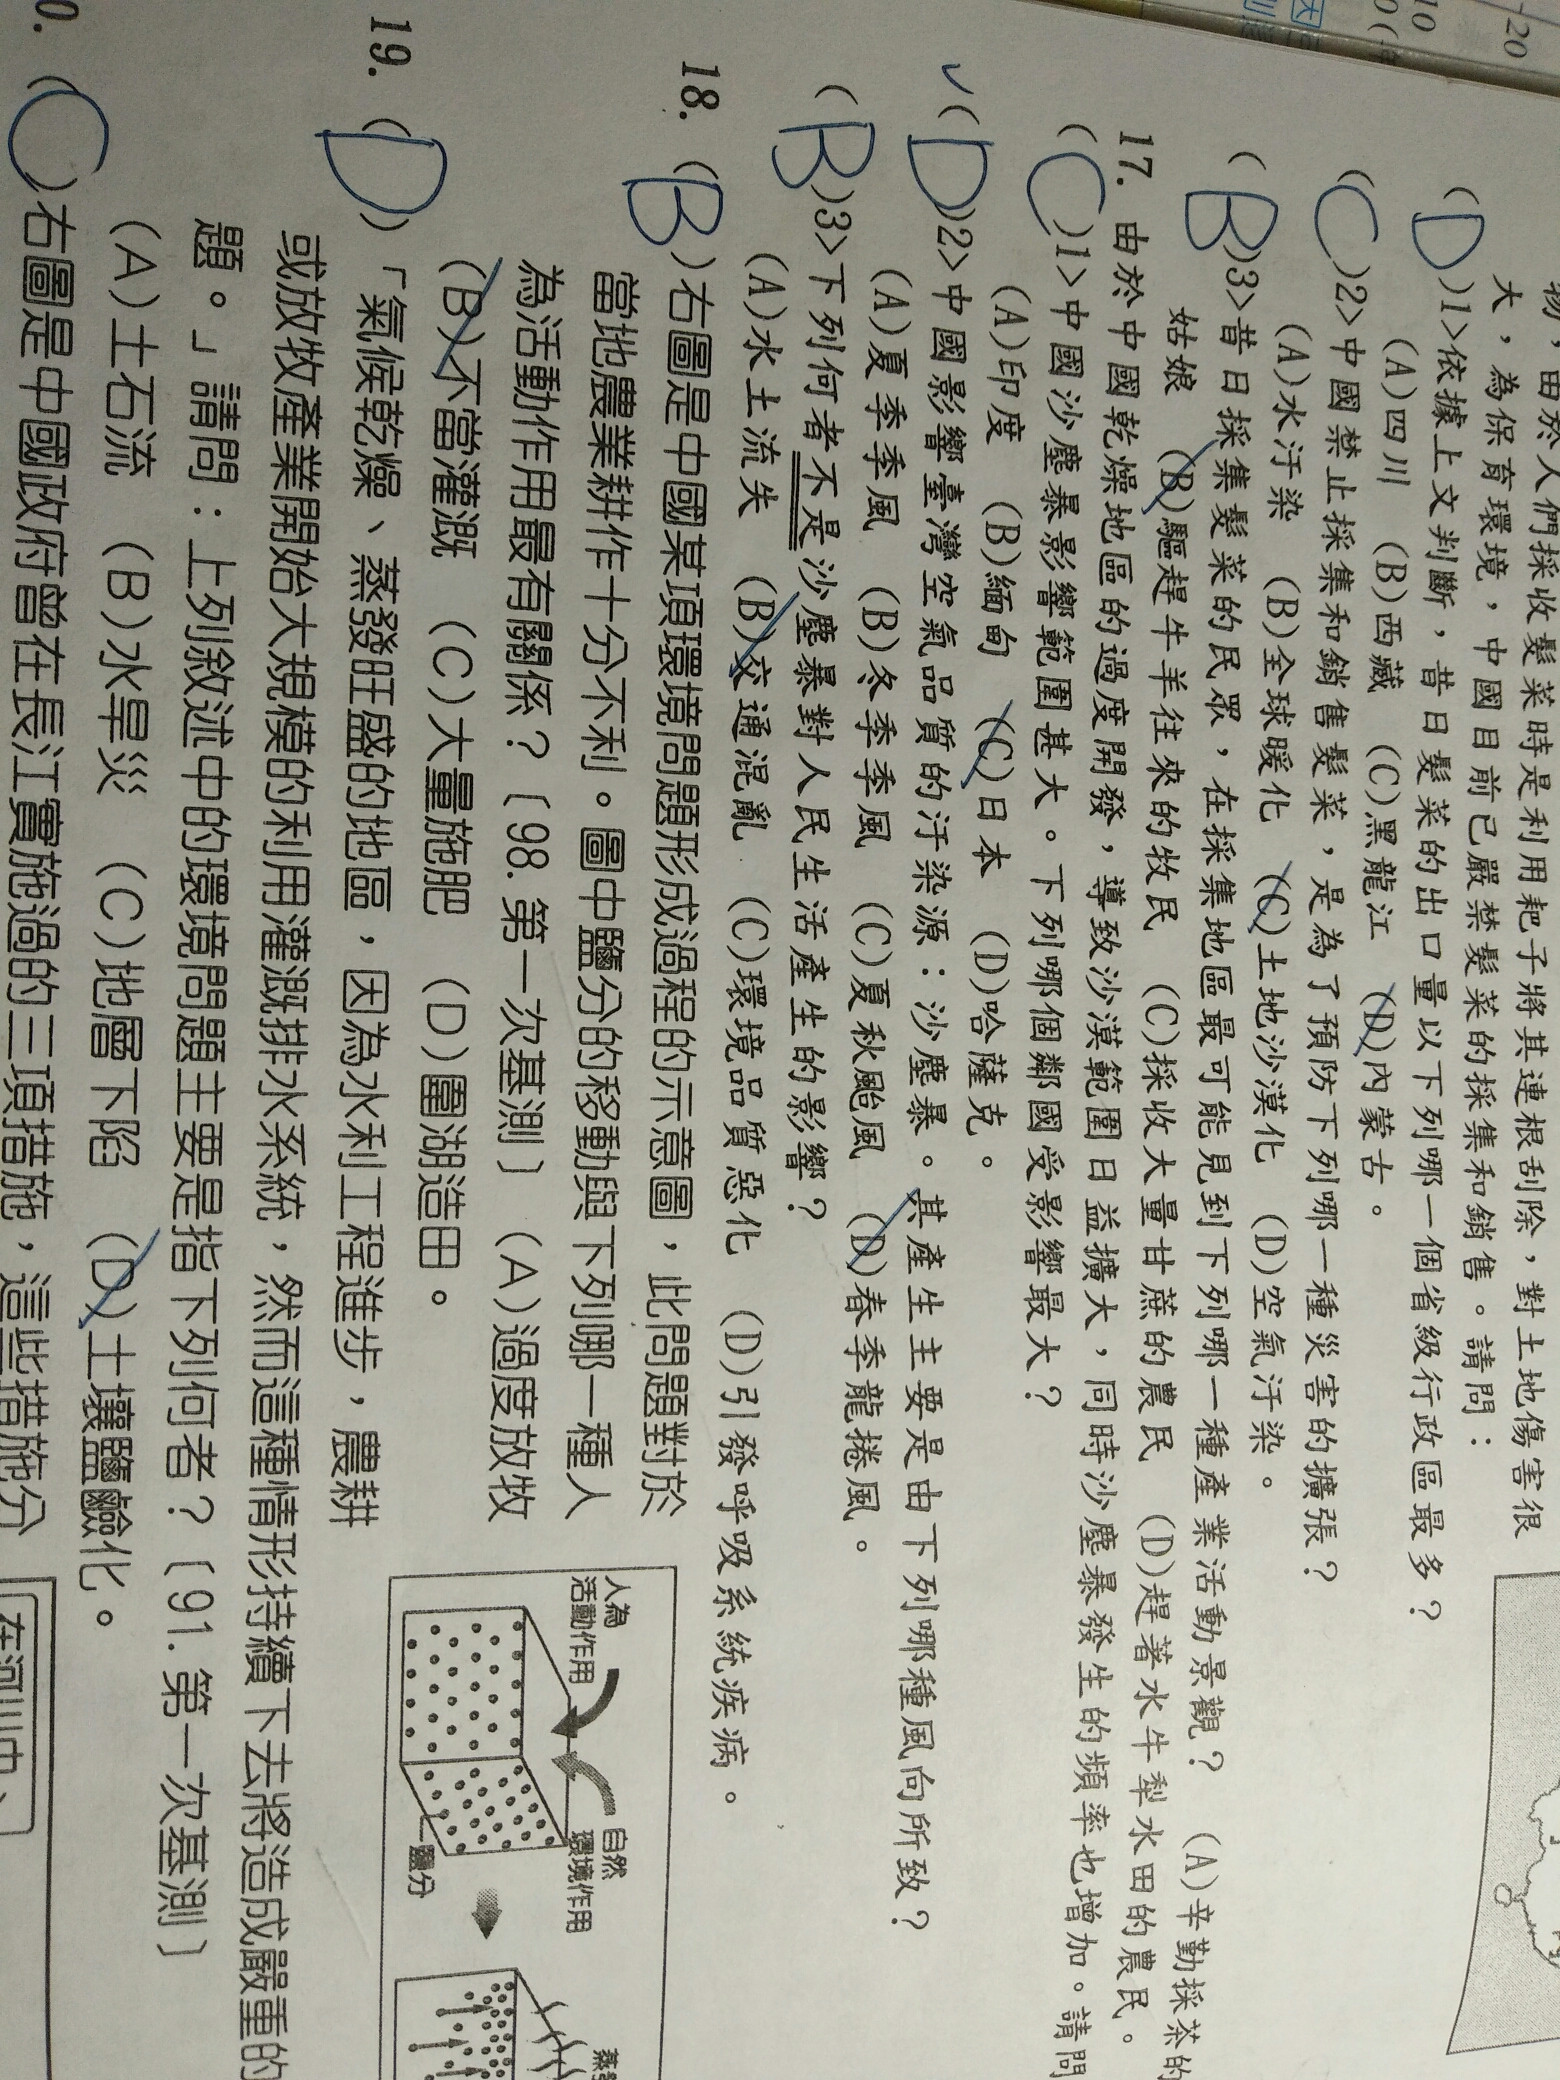 20
10
物，由於人們採收髮菜時是利用耙子將其連根刮除，對土地傷害很
大，為保育環境，中國目前已嚴禁髮菜的採集和銷售。請問：
(D)1>依據上文判斷，昔日髮菜的出口量以下列哪一個省級行政區最多？
(A)四川 (B)西藏 (C)黑龍江 (D)內蒙古。
(C)2>中國禁止採集和銷售髮菜，是為了預防下列哪一種災害的擴張？
(A)水汙染 (B)全球暖化 (C)土地沙漠化 (D)空氣汙染。
(B)3>昔日採集髮菜的民眾，在採集地區最可能見到下列哪一種產業活動景觀？ (A)辛勤採茶的
姑娘 (B)驅趕牛羊往來的牧民 (C)採收大量甘蔗的農民 (D)趕著水牛犁水田的農民。
17. 由於中國乾燥地區的過度開發，導致沙漠範圍日益擴大，同時沙塵暴發生的頻率也增加。請問
(C)1>中國沙塵暴影響範圍甚大。下列哪個鄰國受影響最大？
(A)印度 (B)緬甸 (C)日本 (D)哈薩克。
✓(D)2>中國影響臺灣空氣品質的汙染源：沙塵暴。其產生主要是由下列哪種風向所致？
(A)夏季季風 (B)冬季季風 (C)夏秋颱風 (D)春季龍捲風。
(B)3>下列何者不是沙塵暴對人民生活產生的影響？
(A)水土流失 (B)交通混亂 (C)環境品質惡化 (D)引發呼吸系統疾病。
18. (B)右圖是中國某項環境問題形成過程的示意圖，此問題對於
當地農業耕作十分不利。圖中鹽分的移動與下列哪一種人
為活動作用最有關係？〔98.第一次基測〕 (A)過度放牧
(B)不當灌溉 (C)大量施肥 (D)圍湖造田。
人為
活動作用
自然
環境作用
鹽分
19. (D)「氣候乾燥、蒸發旺盛的地區，因為水利工程進步，農耕
或放牧產業開始大規模的利用灌溉排水系統，然而這種情形持續下去將造成嚴重的
題。」請問：上列敘述中的環境問題主要是指下列何者？〔91.第一次基測〕
(A)土石流 (B)水旱災 (C)地層下陷 (D)土壤鹽鹼化。
0. (C)右圖是中國政府曾在長江實施過的三項措施，這些措施分
在河川中、